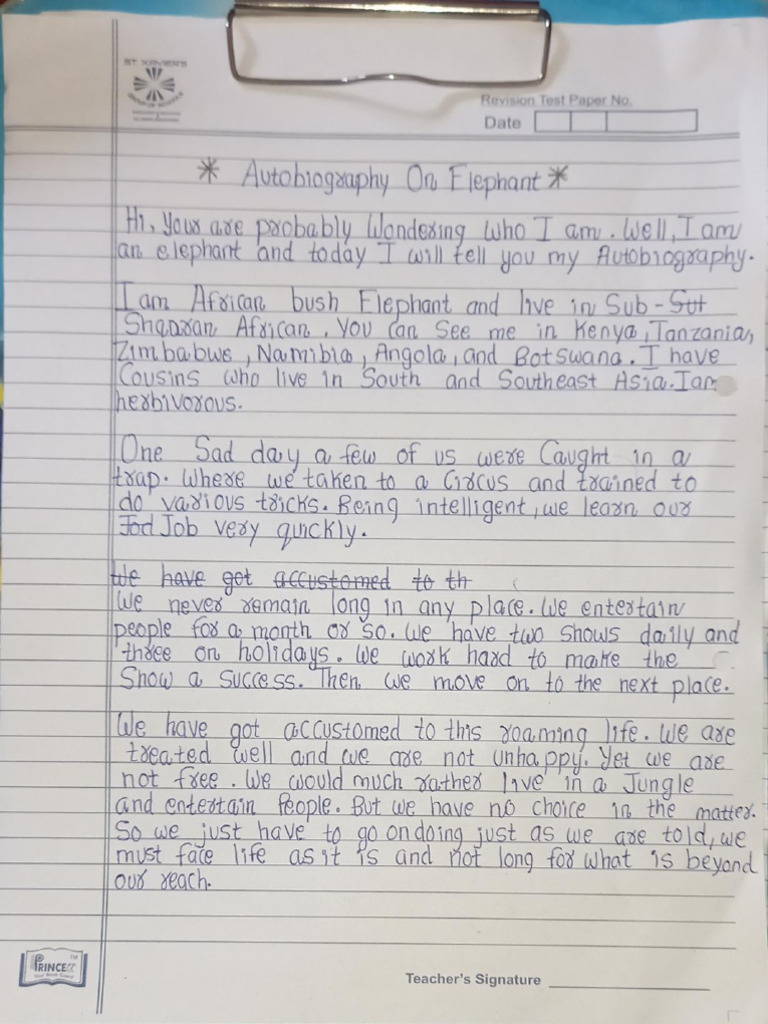 ST XAVIER'S
GROUP OF SCHOOLS
Revision Test Paper No.
Date
* Autobiography On Elephant *
Hi, Your are probably Wondering who I am. Well, I am
an elephant and today I will tell you my Autobiography.
I am African bush Elephant and live in Sub-Sut
Shaaran African. You can See me in Kenya, Tanzania,
Zimbabwe, Namibia, Angola, and Botswana. I have
Cousins who live in South and Southeast Asia. I am
herbivorous.
One Sad day a few of us were Caught in a
trap. Where we taken to a Circus and trained to
do various tricks. Being intelligent, we learn our
Jod Job very quickly.
We have got accustomed to th
We never remain long in any place. We entertain
people for a month or so. We have two shows daily and
three on holidays. We work hard to make the
Show a success. Then we move on to the next place.
We have got accustomed to this roaming life. We are
treated well and we are not unhappy. Yet we are
not free. We would much rather live in a Jungle
and entertain People. But we have no choice in the matter.
So we just have to go on doing just as we are told, we
must face life as it is and not long for what is beyond
our reach.
PRINCE
TM
Teacher's Signature